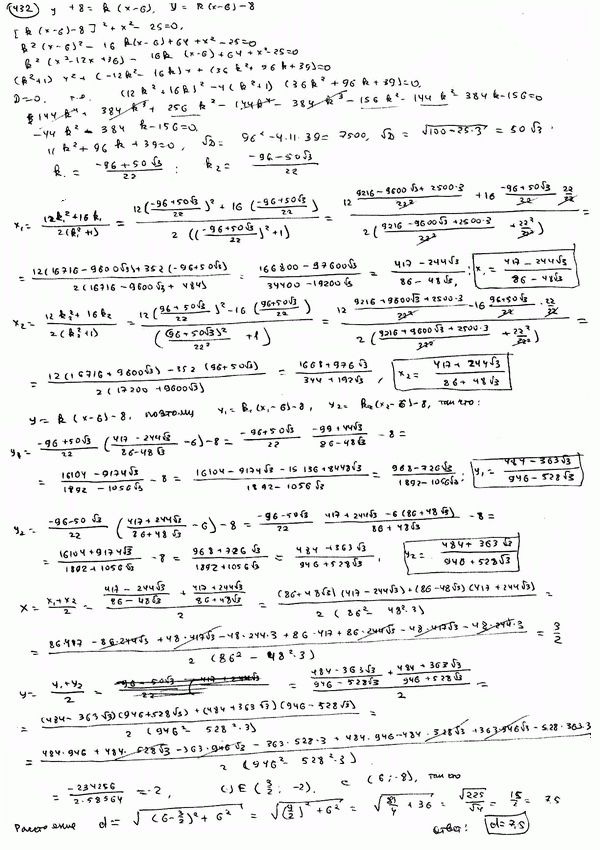 432 y+8=k(x-6), y=k(x-6)-8
[k(x-6)-8]²+x²-25=0,
k²(x-6)²-16k(x-6)+64+x²-25=0
k²(x²-12x+36)-16k(x-6)+64+x²-25=0
(k²+1)x²+(-12k²-16k)x+(36k²+96k+39)=0
D=0, т.е. (12k²+16k)²-4(k²+1)(36k²+96k+39)=0,
144k⁴+384k³+256k²-144k⁴-384k³-156k²-144k²-384k-156=0
-44k²-384k-156=0,
11k²+96k+39=0, √D=96²-4·11·39=7500, √D=√(100·25·3)=50√3
k₁=(-96+50√3)/22; k₂=(-96-50√3)/22
x₁=(12k₁²+16k₁)/(2(k₁²+1))=(12((-96+50√3)/22)²+16((-96+50√3)/22))/(2(((-96+50√3)/22)²+1))=(12(9216-9600√3+2500·3)/22²+16(-96+50√3)/22·22/22)/(2((9216-9600√3+2500·3)/22²+22²/22²))=
=(12(16716-9600√3)+352(-96+50√3))/(2(16716-9600√3+484))=(166800-97600√3)/(34400-19200√3)=(417-244√3)/(86-48√3); x₁=(417-244√3)/(86-48√3)
x₂=(12k₂²+16k₂)/(2(k₂²+1))=(12((96+50√3)/22)²-16((96+50√3)/22))/(2((96+50√3)²/22²+1))=(12(9216+9600√3+2500·3)/22²-16(96+50√3)/22·22/22)/(2((9216+9600√3+2500·3)/22²+22²/22²))=
=(12(16716+9600√3)-352(96+50√3))/(2(17200+9600√3))=(1668+976√3)/(344+192√3), x₂=(417+244√3)/(86+48√3)
y=k(x-6)-8, поэтому y₁=k₁(x₁-6)-8, y₂=k₂(x₂-6)-8, так что:
y₁=(-96+50√3)/22((417-244√3)/(86-48√3)-6)-8=(-96+50√3)/22 (-99+44√3)/(86-48√3)-8=
=(16104-9174√3)/(1892-1056√3)-8=(16104-9174√3-15136+8448√3)/(1892-1056√3)=(968-726√3)/(1892-1056√3); y₁=(484-363√3)/(946-528√3)
y₂=(-96-50√3)/22((417+244√3)/(86+48√3)-6)-8=(-96-50√3)/22 (417+244√3-6(86+48√3))/(86+48√3)-8=
=(16104+9174√3)/(1892+1056√3)-8=(968+726√3)/(1892+1056√3)=(484+363√3)/(946+528√3), y₂=(484+363√3)/(946+528√3)
x=(x₁+x₂)/2=((417-244√3)/(86-48√3)+(417+244√3)/(86+48√3))/2=((86+48√3)(417-244√3)+(86-48√3)(417+244√3))/(2(86²-48²·3))=
=(86·417-86·244√3+48·417√3-48·244·3+86·417+86·244√3-48·417√3-48·244·3)/(2(86²-48²·3))=3/2
y=(y₁+y₂)/2=((484-363√3)/(946-528√3)+(484+363√3)/(946+528√3))/2=
=((484-363√3)(946+528√3)+(484+363√3)(946-528√3))/(2(946²-528²·3))=
=(484·946+484·528√3-363·946√3-363·528·3+484·946-484·528√3+363·946√3-528·363·3)/(2(946²-528²·3))
=-234256/(2·58564)=-2, E(3/2; -2). C(6;-8), так что
Расстояние d=√((6-3/2)²+6²)=√((9/2)²+6²)=√(81/4+36)=√225/√4=15/2=7,5
Ответ: d=7,5